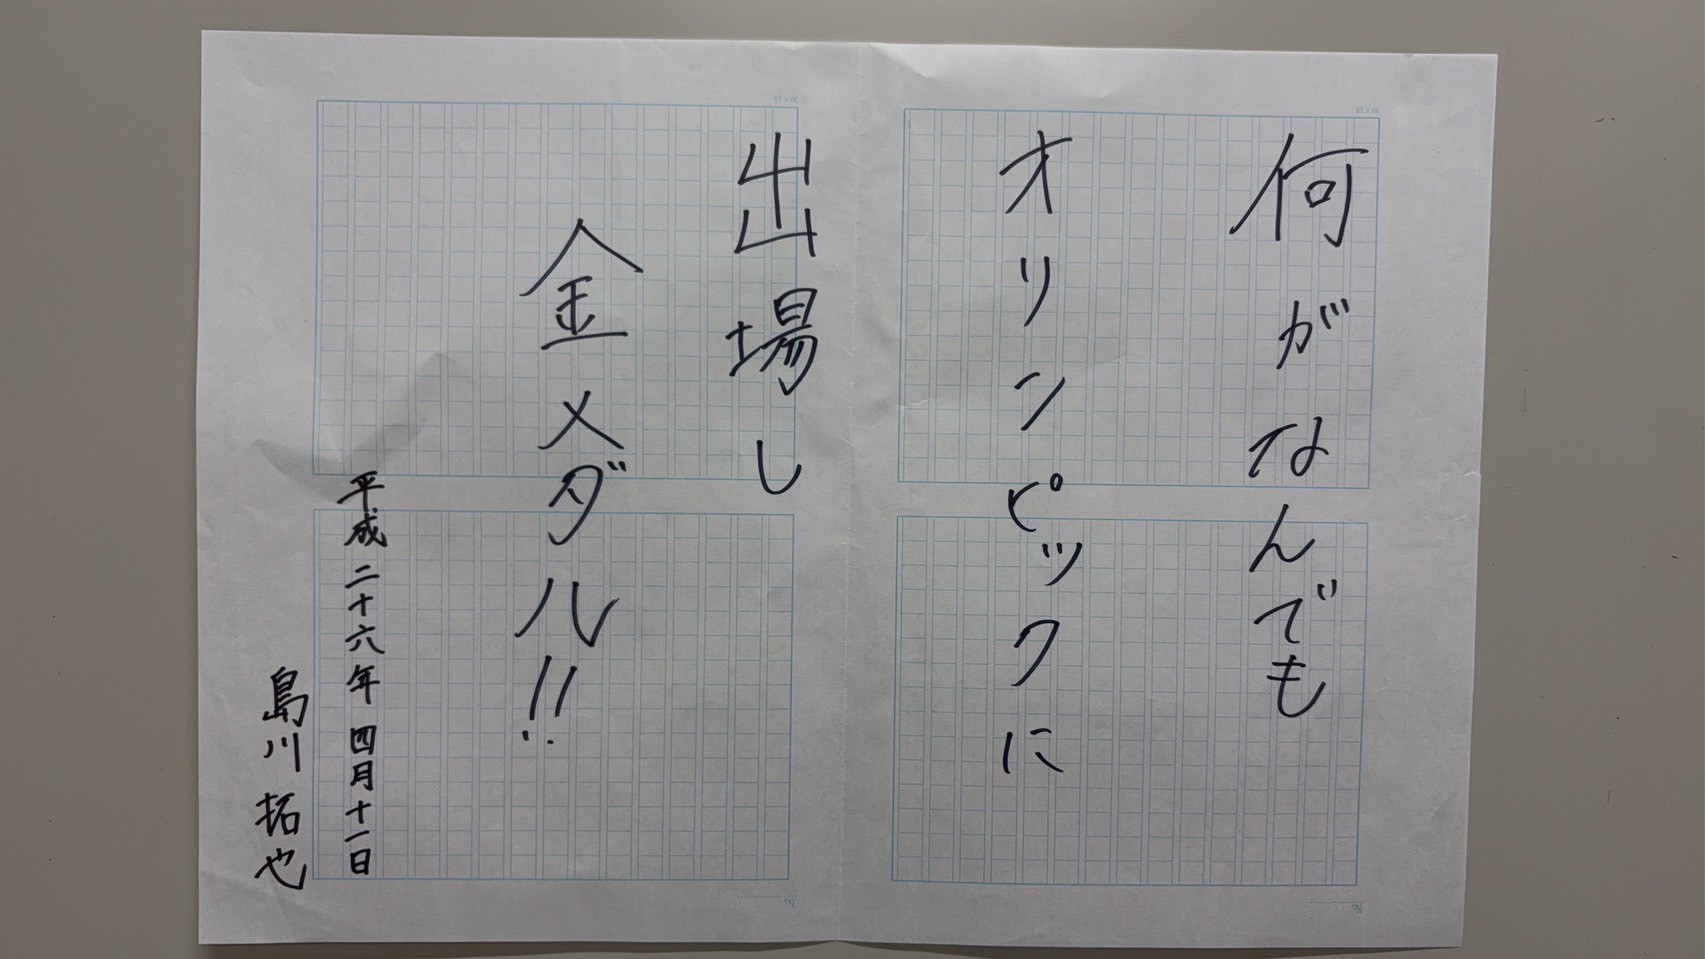 何がなんでも
オリンピックに
出場し
金メダル!!
平成二十六年四月十一日
島川拓也